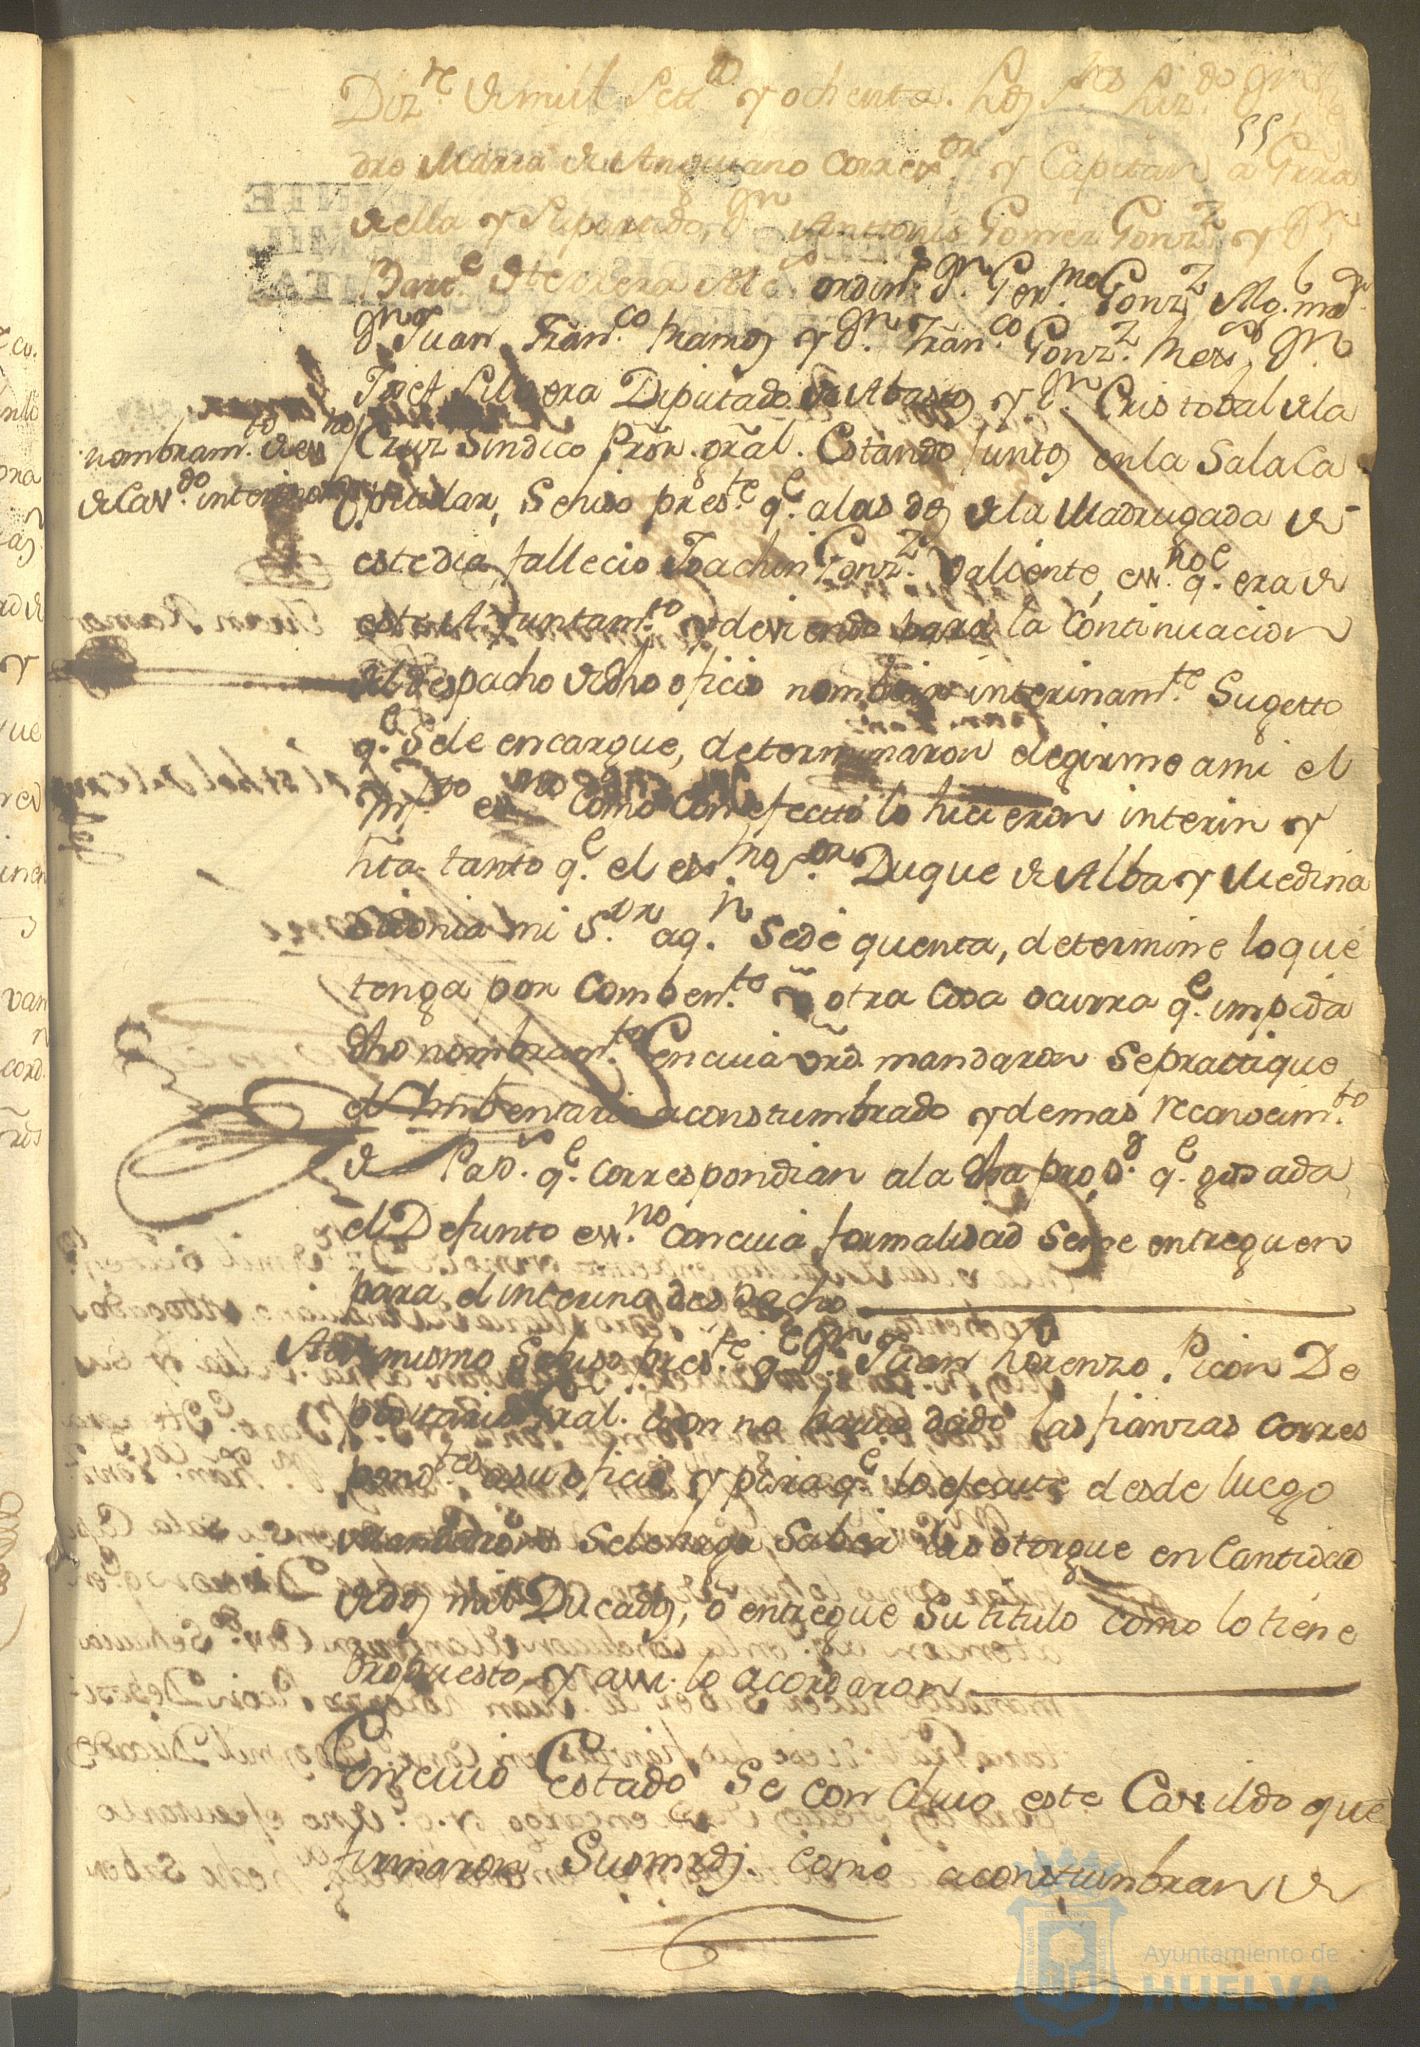 Diz.re de mill Setz.os y ochenta. Los S.res Liz.do D.n Pe
dro Maria de Anguiano Correx.or y Capitan a Grra
de ella y su partido, D.n Antonio Gomez Gonz.z y D.n
Bar.e de Herrera Alc.s ordin.s D.n Ger.mo Gonz.z Alg. m.or
D.n Juan Fran.co Ramos y D.n Fran.co Gonz.z Rex.s D.n
Josef Rivera Diputado de Abastos y D.n Cristobal de la
Cruz Sindico Pror. gral. Estando Juntos en la Sala Ca
pitular, Se hiso pres.te q.e a las dos de la Madrugada de
este dia, fallecio Joachin Gonz.z Valiente, ess.no q.e era de
este Ayuntam.to y deviendo para la Continuacion
del despacho de dho oficio nombrar interinam.te Sugetto
q.e Se le encargue, determinaron elegirme a mi el
ess.no como con efecto lo hicieron interin y
hta tanto q.e el ex.mo S.or Duque de Alba y Medina
Sidonia mi S.or a q.n Se dé quenta, determine lo que
tenga por comben.te u otra cosa ocurra q.e impida
dho nombram.to En cuia vrd. mandaron Se practique
el Imbentario acostumbrado y demas reconocim.to
de Pap.s q.e correspondian a la dha pro.. q.e
el Defunto ess.no con cuia formalidad Se me entreguen
para el interino despacho
Asimismo Se hiso pres.te q.e D.n Juan Lorenzo Picon De
positario Gral. aun no havia dado las fianzas corres
pond.tes a su oficio y para q.e lo efectue desde luego
Mandaron Se le haga Saver las otorgue en Cantidad
de dos mil Ducados, o entregue Su titulo como lo tiene
propuesto, y assi lo acordaron
En cuio Estado Se concluio este Cavildo que
firmaron Su mrds. como acostumbran de
nombram.to de ess.no
de Cav.do interino
Ayuntamiento de
HUELVA